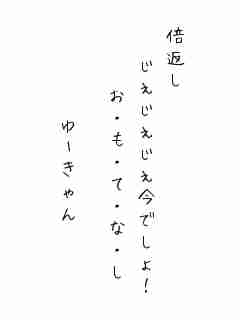 倍返し
じぇじぇじぇ今でしょ！
お・も・て・な・し
ゆーきゃん